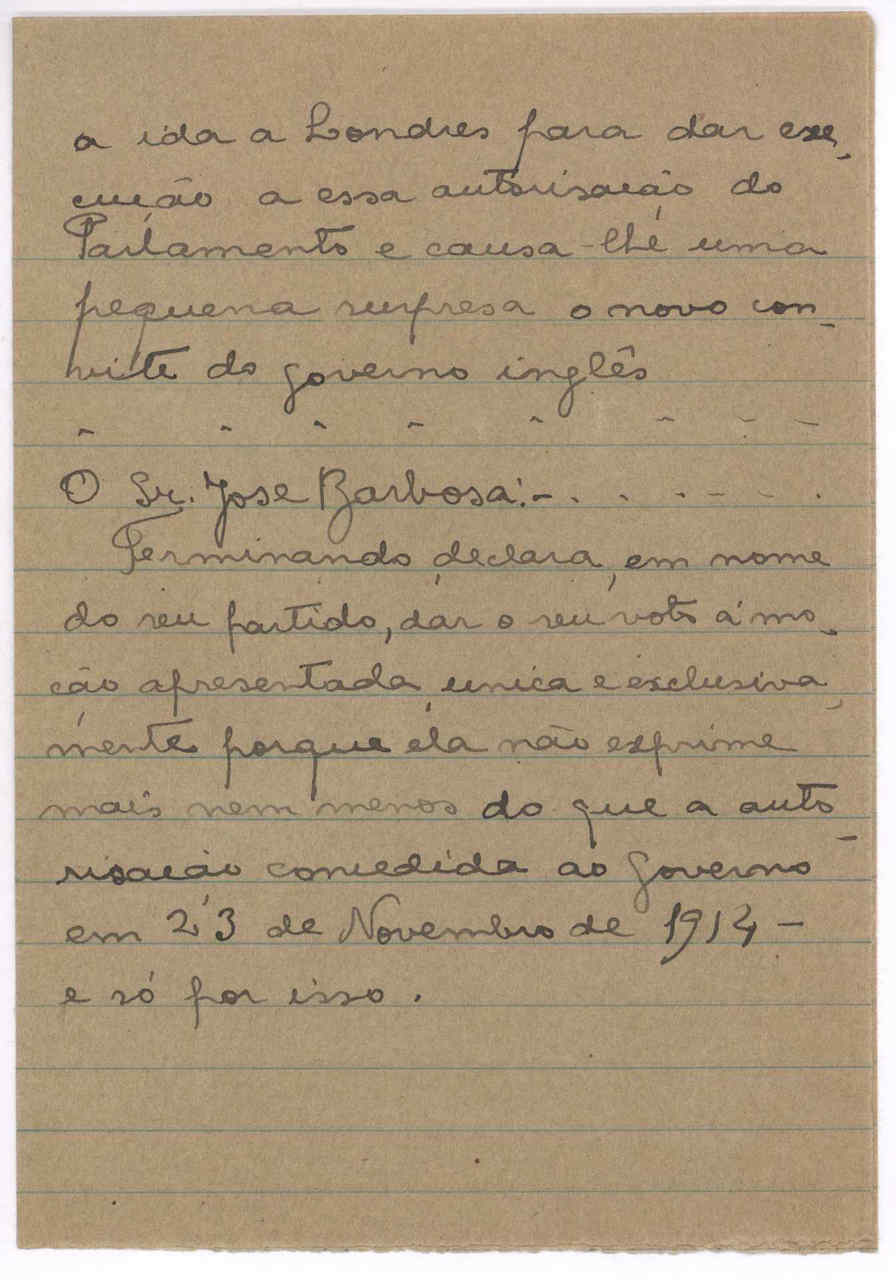 a ida a Londres para dar exe-
cução a essa autorisação do
Parlamento e causa-lhe uma
pequena surpresa o novo con-
vite do governo inglês
- - - - - - - -
O Sr. José Barbosa: - . . . - - - .
Terminando, declara, em nome
do seu partido, dar o seu voto á mo-
ção apresentada, unica e exclusiva-
mente porque ela não exprime
mais nem menos do que a auto-
risação concedida ao Governo
em 23 de Novembro de 1914 -
e só por isso.